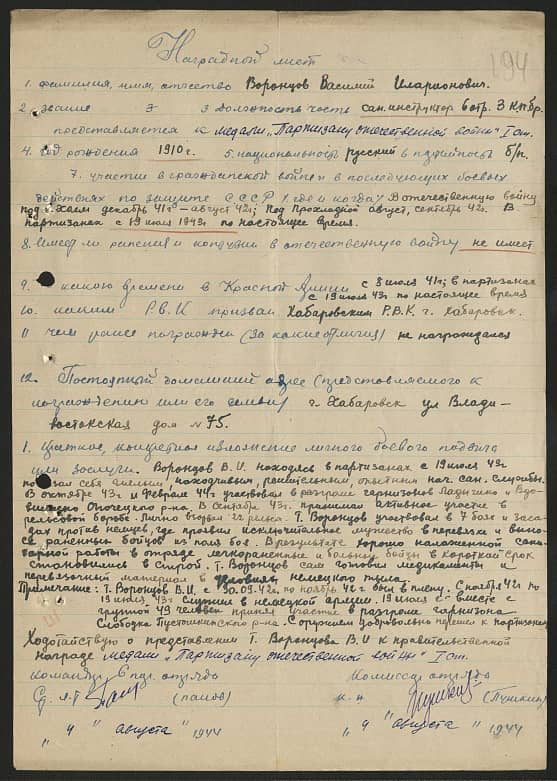 194
Наградной лист
1. фамилия, имя, отчество Воронцов Василий Иларионович.
2. звание З 3 должность часть сан. инструктор 6 отр. 3 К.п.бр.
представляется к медали „Партизану отечественной войны" I ст.
4. год рождения 1910 г. 5. национальность русский 6 партийность б/п.
7. участие в гражданской войне и в последующих боевых
действиях по защите СССР (где и когда) В отечественную войну
под г. декабрь 41г – август 42г; Под Прохладной август, сентябрь 42г. В
партизанах с 19 июля 1943г по настоящее время.
8. Имеет ли ранения и контузии в отечественную войну не имет
9. с какого времени в Красной Армии с 8 июля 41г; в партизанах
с 19 июля 43г по настоящее время
10. каким Р.В.К призван Хабаровским Р.В.К г. Хабаровск.
11 чем ранее награжден (за какие отличия) не награждался
12. Постоянный домашний адрес (представляемого к
награждению или его семьи) г. Хабаровск ул Влади-
востокская дом № 75.
1. Краткое, конкретное изложение личного боевого подвига
или заслуги. Воронцов В.И. находясь в партизанах с 19 июля 43г
показал себя смелым, находчивым, решительным, опытным нач. сан. службы.
В октябре 43г и феврале 44г участвовал в разгроме гарнизонов и
Опочецкого р-на. В сентябре 43г. принимал активное участие в
рельсовой борьбе. Лично взорвал 12 рельс. Т. Воронцов участвовал в 7 боях и заса-
дах против нацев, где проявил исключительное мужество в перевязке и выно-
се раненных бойцов из поля боя. В результате хорошо налаженной сани-
тарной работы в отряде легкораненные и больные бойцы в короткий срок
становились в строй. Т. Воронцов сам готовил медикаменты и
перевязочный материал в условиях немецкого тыла.
Примечание: Т. Воронцов В.И. с 30.09.42г. по ноябрь 42г был в плену. С ноября 42г по
19 июля 43г служил в немецкой армии. 19 июля с вместе с
группой 49 человек принял участие в разгроме гарнизона
Слободка Пустошкинского р-на. С оружием добровольно перешел к партизанам
Ходотайствую о представлении Т. Воронцова В.И к правительственной
награде медали „Партизану отечественной войны" I ст.
командир 6 парт. отряда Комиссар отряда
(Панов) (Пушкин)
„ 4 " августа 1944
„ " августа 1944